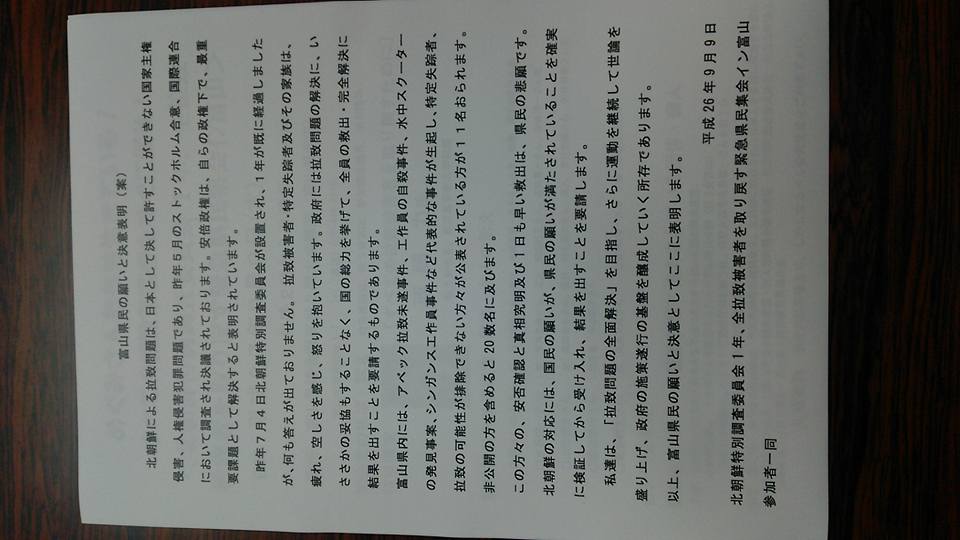 富山県民の願いと決意表明（案）
北朝鮮による拉致問題は、日本として決して許すことができない国家主権
侵害、人権侵害犯罪問題であり、昨年５月のストックホルム合意、国際連合
において調査され決議されております。安倍政権は、自らの政権下で、最重
要課題として解決すると表明されています。
昨年７月４日北朝鮮特別調査委員会が設置され、１年が既に経過しました
が、何も答えが出ておりません。 拉致被害者・特定失踪者及びその家族は、
疲れ、空しさを感じ、怒りを抱いています。政府には拉致問題の解決に、い
ささかの妥協もすることなく、国の総力を挙げて、全員の救出・完全解決に
結果を出すことを要請するものであります。
富山県内には、アベック拉致未遂事件、工作員の自殺事件、水中スクーター
の発見事案、シンガンス工作員事件など代表的な事件が生起し、特定失踪者、
拉致の可能性が排除できない方々が公表されている方が１１名おられます。
非公開の方を含めると20数名に及びます。
この方々の、安否確認と真相究明及び１日も早い救出は、県民の悲願です。
北朝鮮の対応には、国民の願いが、県民の願いが満たされていることを確実
に検証してから受け入れ、結果を出すことを要請します。
私達は、「拉致問題の全面解決」を目指し、さらに運動を継続して世論を
盛り上げ、政府の施策遂行の基盤を醸成していく所存であります。
以上、富山県民の願いと決意としてここに表明します。
平成26年9月9日
北朝鮮特別調査委員会１年、全拉致被害者を取り戻す緊急県民集会イン富山
参加者一同